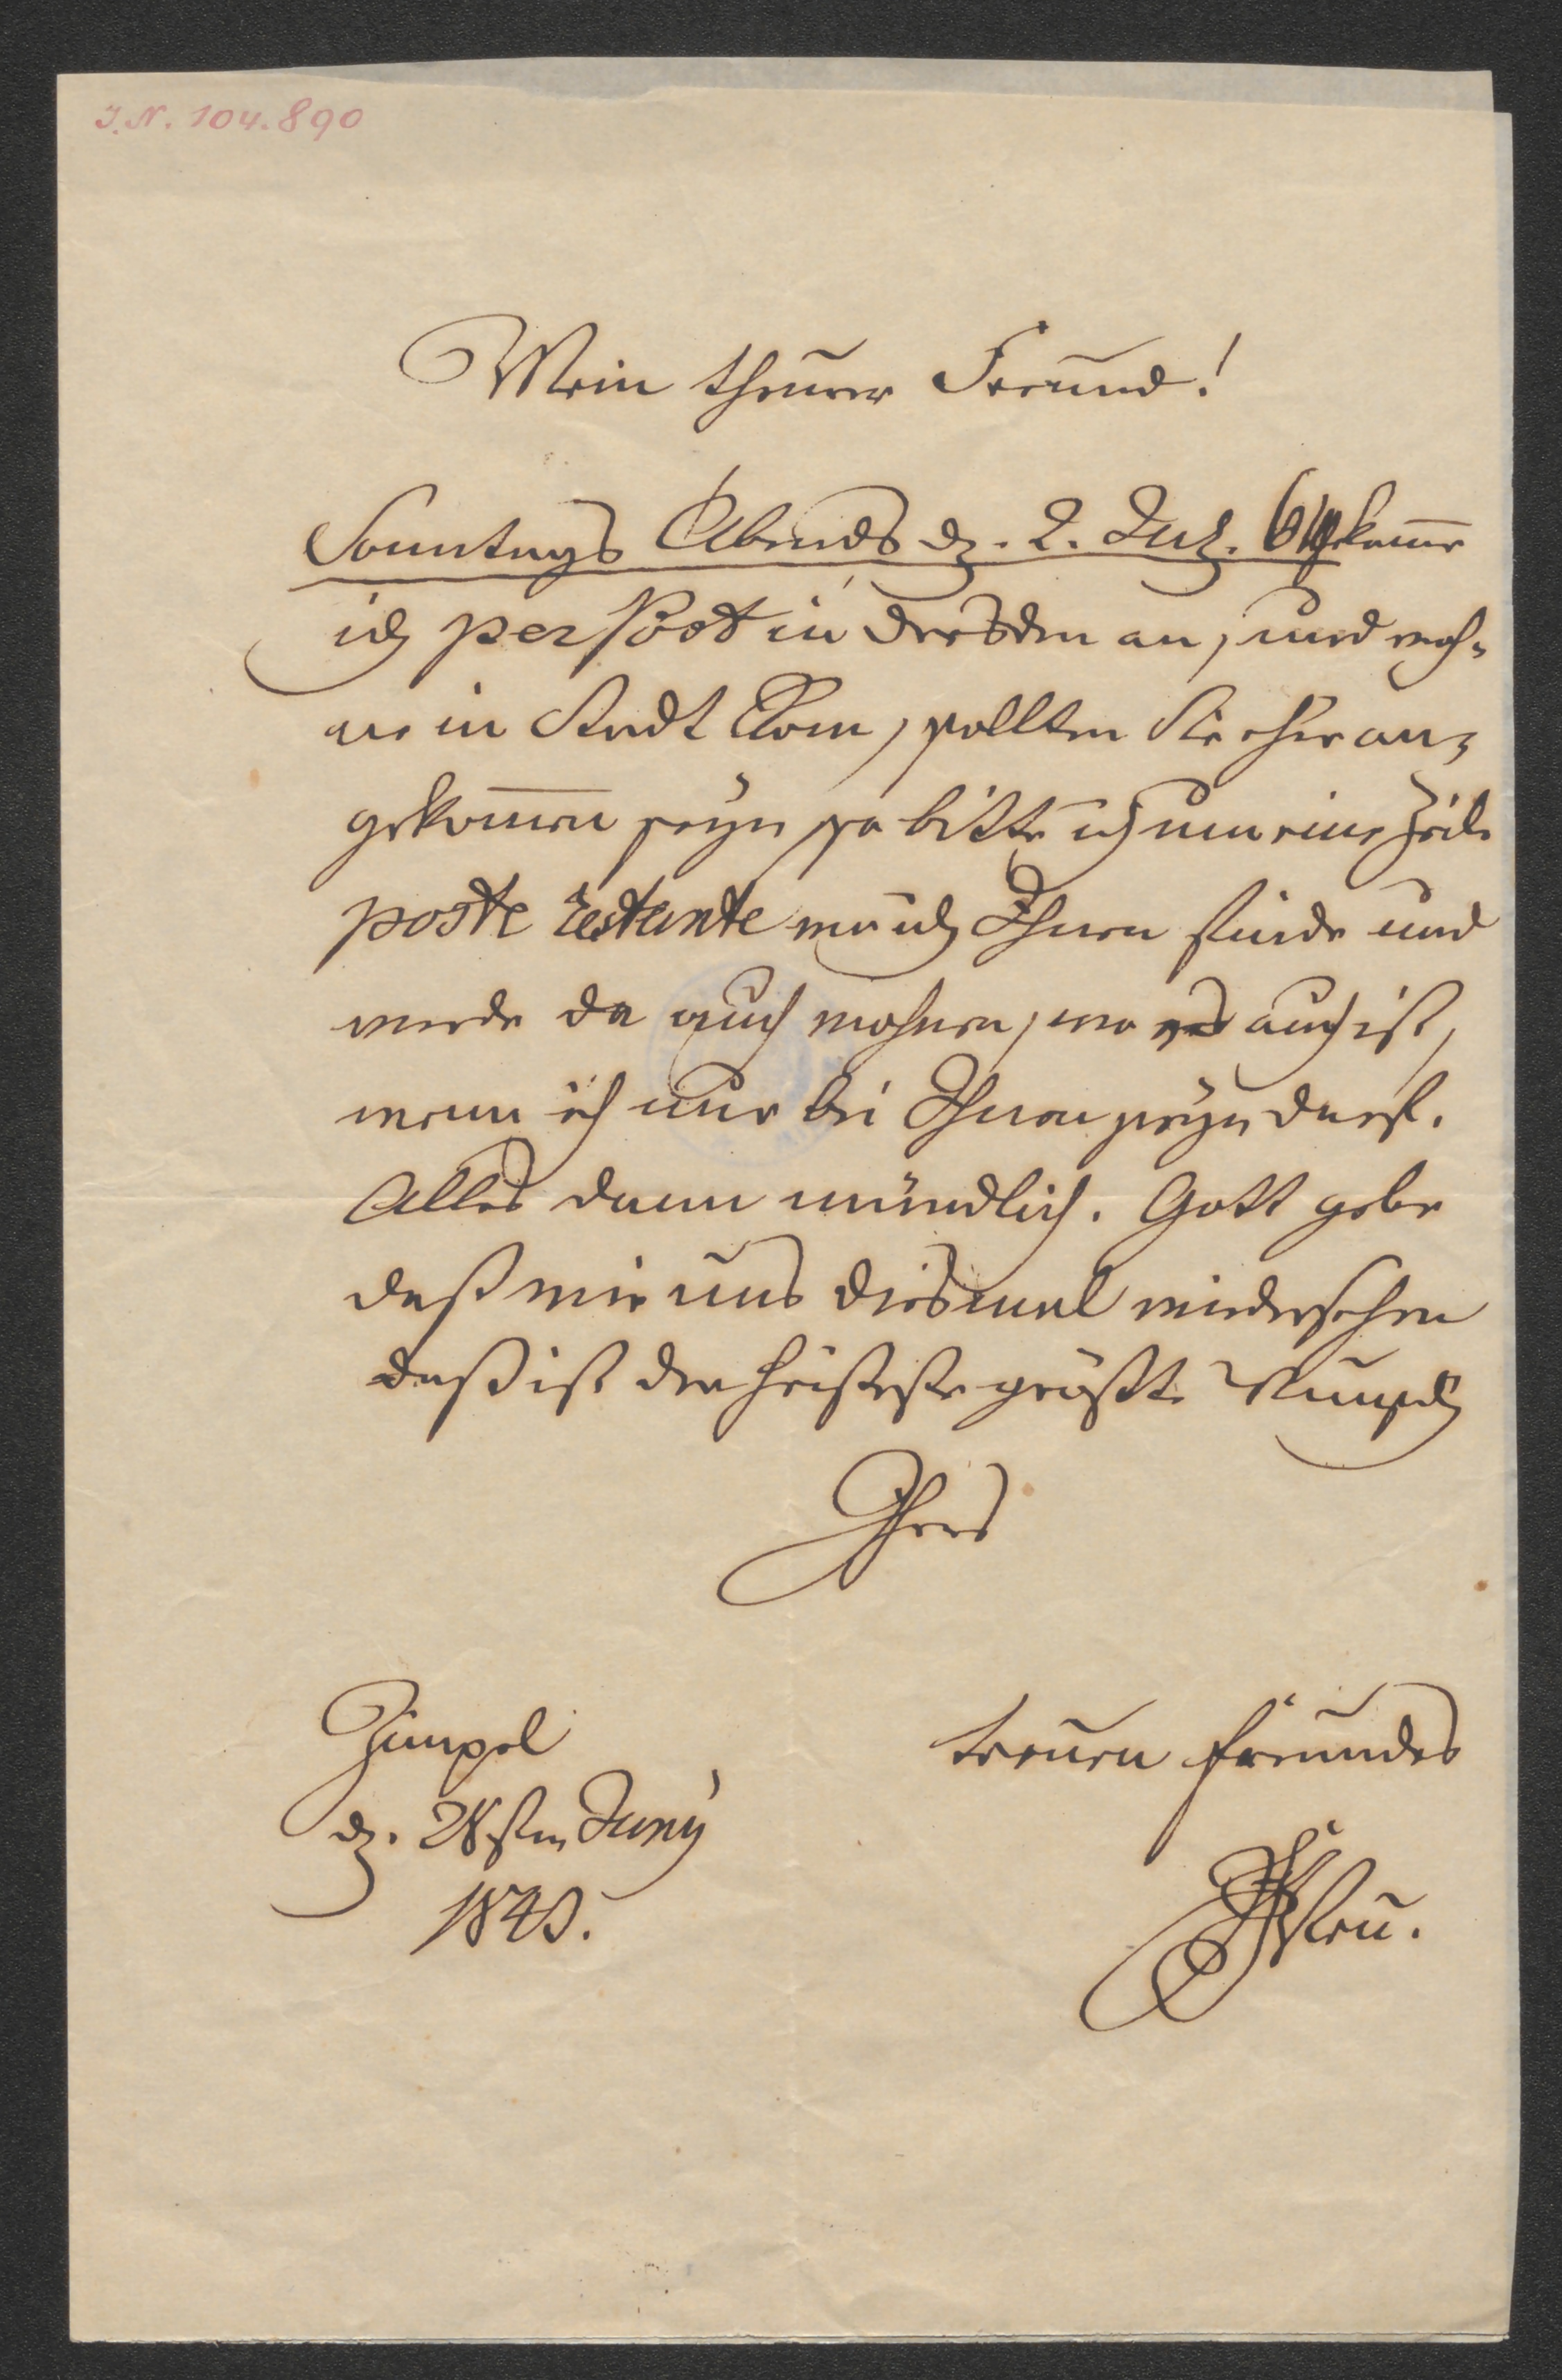 J.N. 104.890
Mein theurer Freund!
Sonntags Abends d. 2. Jul. 6 Uhr komme
ich per Post in Dresden an, und woh-
ne in Stadt Rom, sollten Sie eher an-
gekommen seyn so bitte ich um eine Zeile
poste restante wo ich Ihnen finde und
werde da auch wohnen, wo es auch ist,
wenn ich nur bei Ihnen seyn darf.
Alles dann mündlich. Gott gebe
daß wir uns diesmal wiedersehen
daß ist der heißeste größte Wunsch
Ihres
treuen Freundes
Zimpel
d. 28sten Juny
184